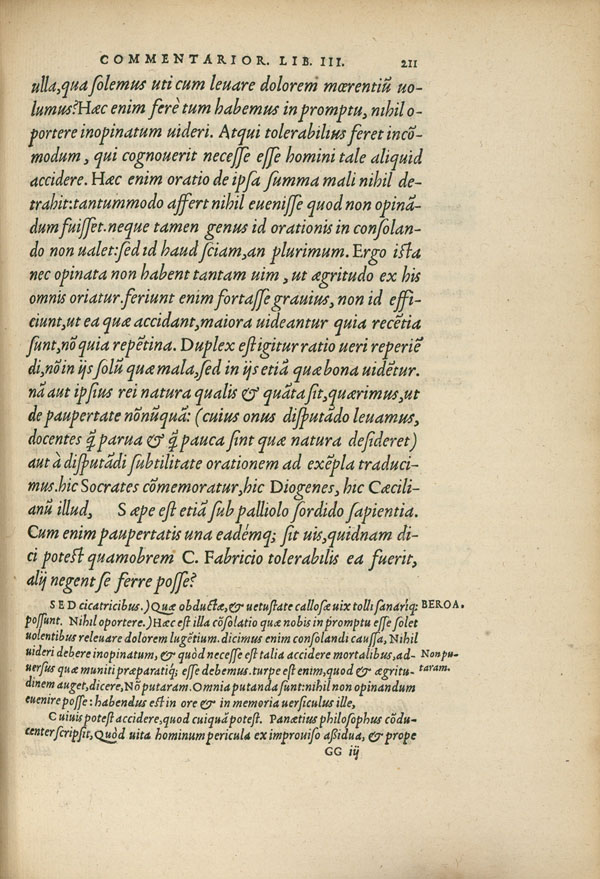 COMMENTARIOR. LIB. III. 211
ulla, qua solemus uti cum leuare dolorem mœrentiũ uo-
lumus? Hæc enim ferè tum habemus in promptu, nihil o-
portere inopinatum uideri. Atqui tolerabilius feret incõ-
modum, qui cognouerit necesse esse homini tale aliquid
accidere. Hæc enim oratio de ipsa summa mali nihil de-
trahit: tantummodo affert nihil euenisse quod non opinã-
dum fuisset. neque tamen genus id orationis in consolan-
do non ualet: sed id haud sciam, an plurimum. Ergo ista
nec opinata non habent tantam uim, ut ægritudo ex his
omnis oriatur. feriunt enim fortasse grauius, non id effi-
ciunt, ut ea quæ accidant, maiora uideantur quia recẽtia
sunt, nõ quia repẽtina. Duplex est igitur ratio ueri reperiẽ
di, nõ in ijs solũ quæ mala, sed in ijs etiã quæ bona uidẽtur.
nã aut ipsius rei natura qualis & quãta sit, quærimus, ut
de paupertate nõnũquã: (cuius onus disputãdo leuamus,
docentes q̃ parua & q̃ pauca sint quæ natura desideret)
aut à disputãdi subtilitate orationem ad exẽpla traduci-
mus. hic Socrates cõmemoratur, hic Diogenes, hic Cæcili-
anũ illud, Sæpe est etiã sub palliolo sordido sapientia.
Cum enim paupertatis una eadémq; sit uis, quidnam di-
ci potest quamobrem C. Fabricio tolerabilis ea fuerit,
alij negent se ferre posse?
SED cicatricibus.) Quæ obductæ, & uetustate callosæ uix tolli sanaríq; BEROA.
possunt. Nihil oportere.) Hæc est illa cõsolatio quæ nobis in promptu esse solet
uolentibus releuare dolorem lugẽtium. dicimus enim consolandi caussa, Nihil
uideri debere inopinatum, & quòd necesse est talia accidere mortalibus, ad- Non pu-
uersus quæ muniti præparatiq; esse debemus. turpe est enim, quod & ægritu- taram.
dinem auget, dicere, Nõ putaram. Omnia putanda sunt: nihil non opinandum
euenire posse: habendus est in ore & in memoria uersiculus ille,
Cuiuis potest accidere, quod cuiquã potest. Panætius philosophus cõdu-
center scripsit, Quòd uita hominum pericula ex improuiso aßidua, & prope
GG iij